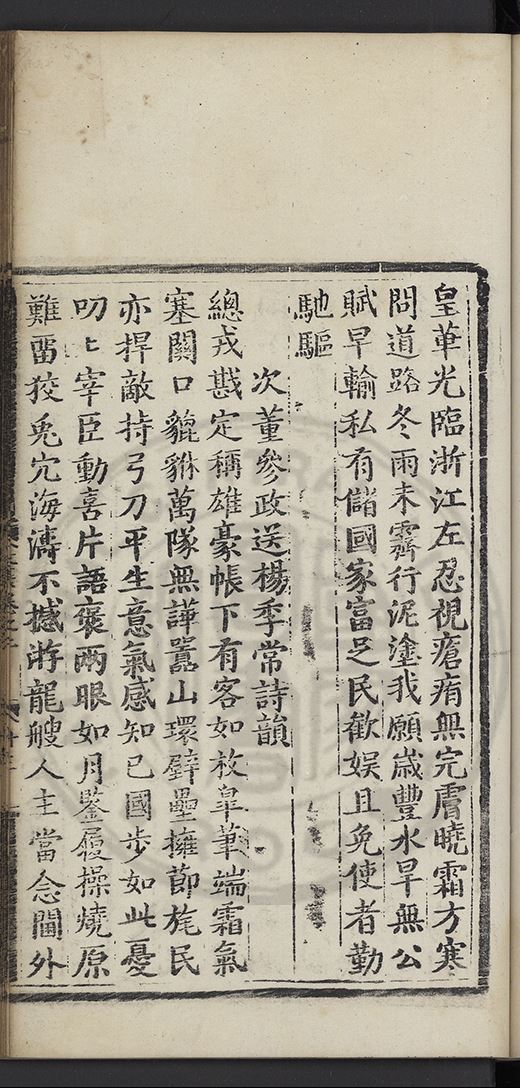 皇華光臨浙江左忍視瘡痏無完膚曉霜方寒
問道路冬雨未霽行泥塗我願歲豐水旱無公
賦早輸私有儲國家富足民歡娱且免使者勤
馳驅
次董參政送楊季常詩韻
總戎戡定稱雄豪帳下有客如枚皐筆端霜氣
塞關口貔貅萬隊無譁囂山環壁壘擁節旄民
亦捍敵持弓刀平生意氣感知已國步如此憂
叨ヒ宰臣動喜片語褒兩眼如月鑒履操燒原
難畱狡兎宂海濤不撼游龍艘人主當念閫外